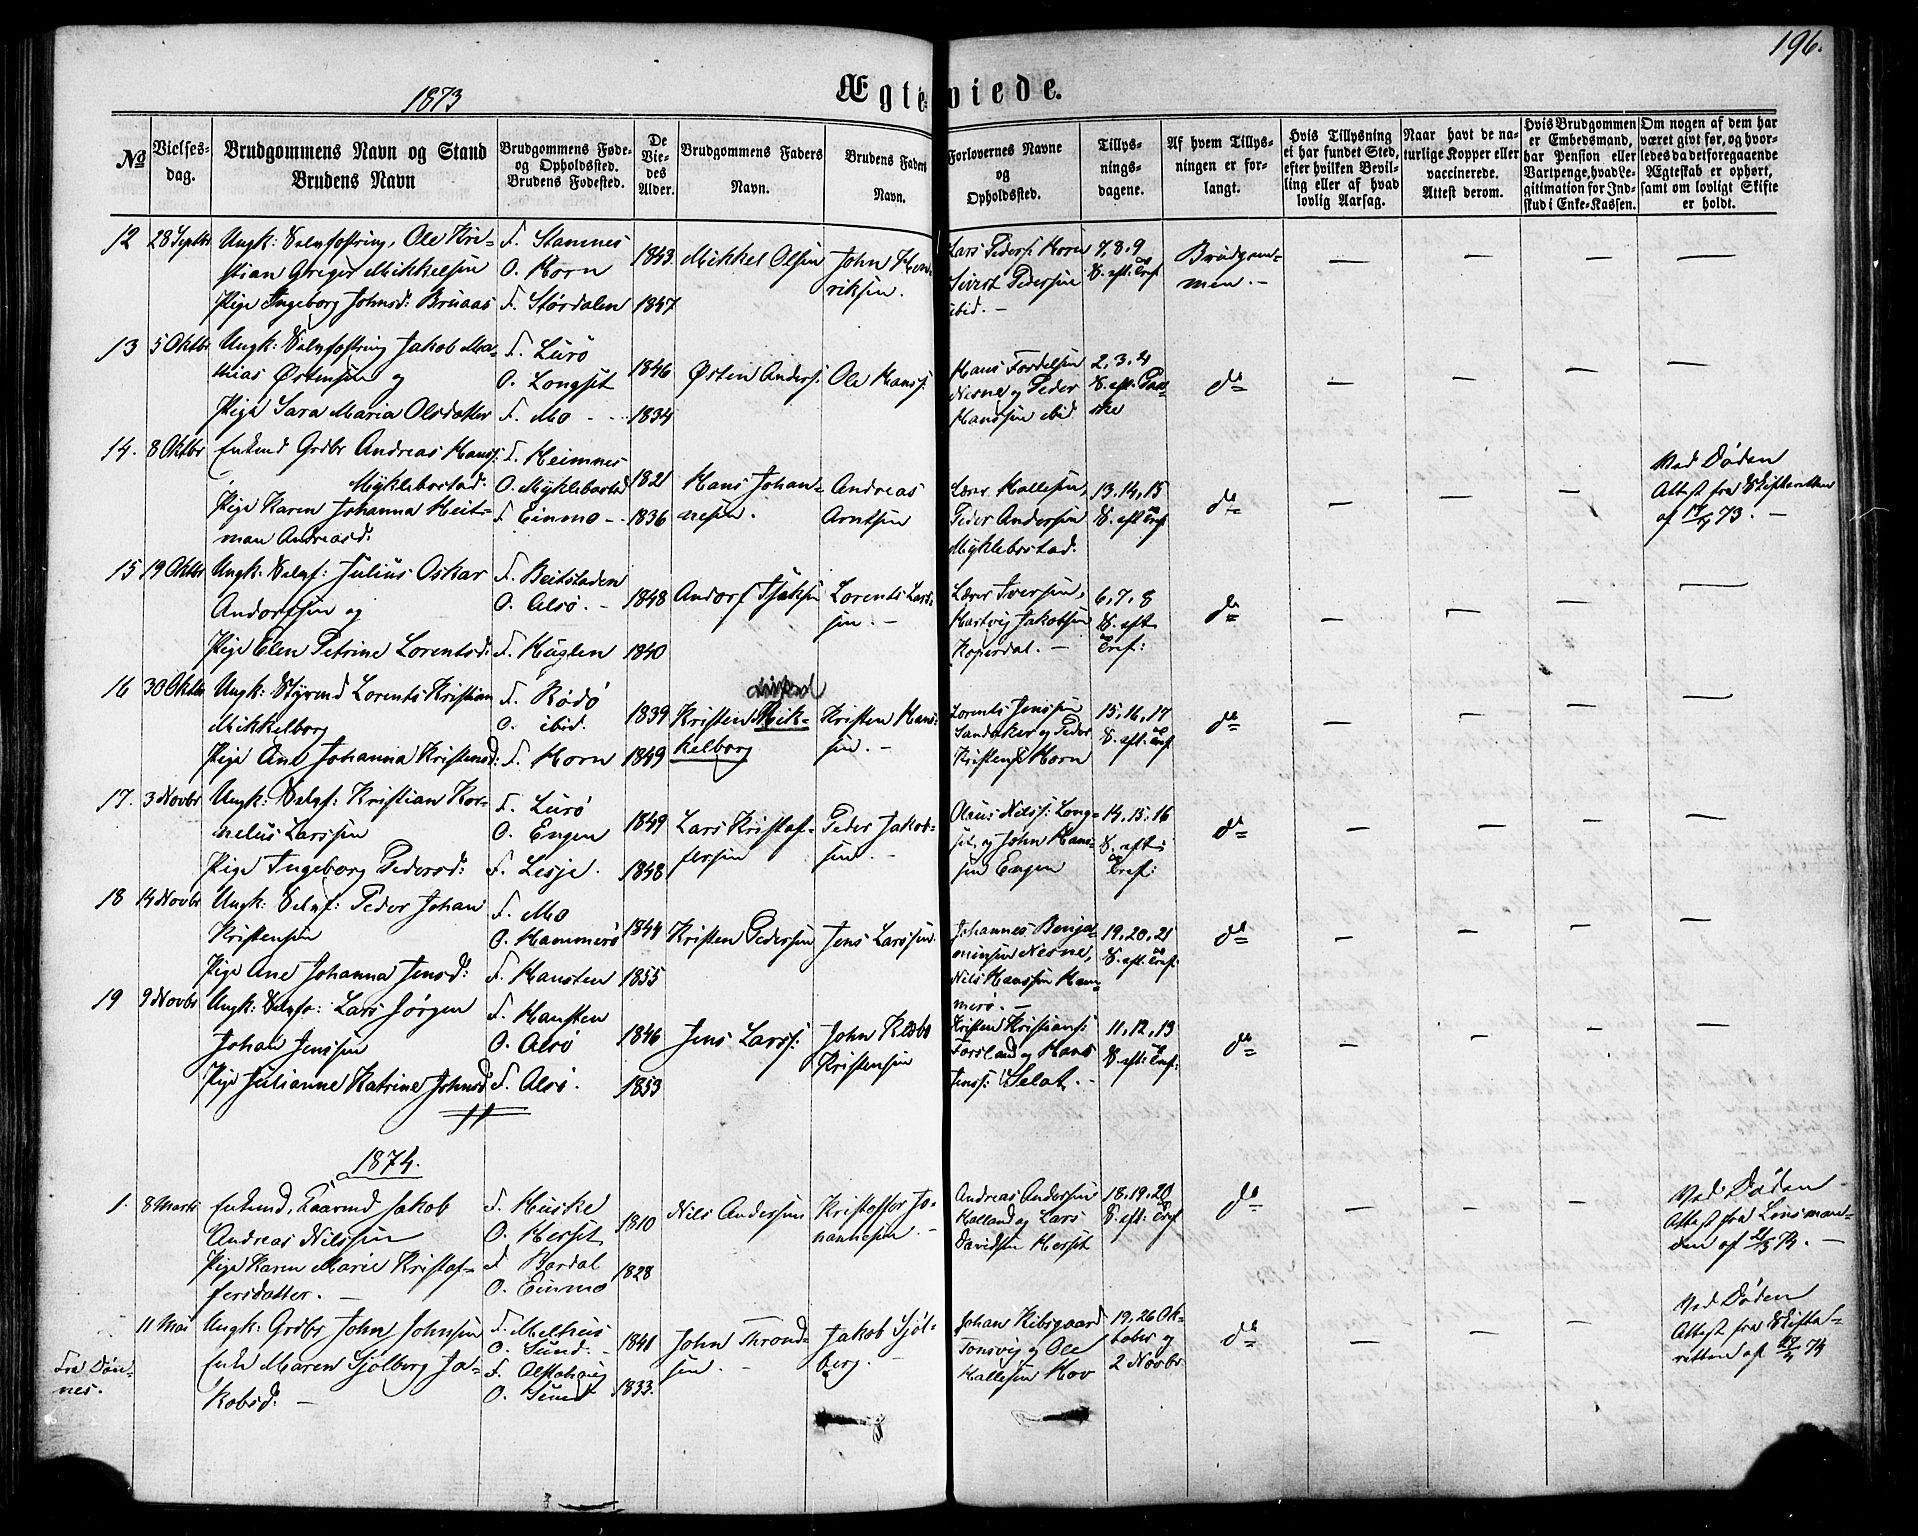 196.
1873
Ægteviede.
No
Vielses-
dag.
Brudgommens Navn og Stand
Brudens Navn
Brudgommens Føde-
og Opholdssted.
Brudens Fødested.
De
Vie-
des
Alder.
Brudgommens Faders
Navn.
Brudens Faders
Navn.
Forlovernes Navne
og
Opholdssted.
Tillys-
nings-
dagene.
Af hvem Tillys-
ningen er for-
langt.
Hvis Tillysning
ei har fundet Sted,
efter hvilken Bevil-
ling eller af hvad
lovlig Aarsag.
Naar havt de na-
turlige Kopper eller
vaccinerede.
Attest derom.
Hvis Brudgommen
er Embedsmand,
har Pension eller
Vartpenge, hvad Le-
gitimation for Ind-
skud i Enke-Kassen.
Om nogen af dem har
været givt før, og hvor-
ledes da det foregaaende
Ægteskab er ophørt,
samt om lovligt Skifte
er holdt.
12 28 Septbr Ungk: Selvfostring, Ole Kri-
stian Greger Mikkelsen
Pige Ingeborg Johnsd: Bruaas
F. Stamnes
O. Horn
F. Størdalen
1843
1847
Mikkel Olsen
John Hen-
riksen.
Lars Peders: Horn
Sivert Pedersen
ibid. -
7, 8, 9
S. eft. Tref.
Brudgom-
men. -
13 5 Oktbr Ungk: Selvfostring Jakob Ma-
thias Østensen og
Pige Sara Maria Olsdatter
F. Lurø
O. Longset
F. Mo
1846
1834
Østen Anders:
Ole Hans:
Hans Fordelsen
Nesne og Peder
Hanssen ibid
2, 3, 4
S. eft. Paa-
ske
do
14. 8 Oktbr Enkemd Grdbr Andreas Hans:
Myklebostad:
Pige Karen Johanna Heit-
man Andreasd:
F. Heimnes
O. Myklebostad
F. Einmo
1821
1836
Hans Johan-
nesen.
Andreas
Arntsen
Lærer Hallesen,
Peder Andersen
Myklebostad.
13, 14, 15
S. eft. Tref.
do
Ved Døden
Attest fra Skifteretten
15 19 Oktbr Ungk: Selvf: Julius Oskar
Andorfsen og
Pige Elen Petrine Lorentsd:
F. Beitstaden
O. Alsø. -
F. Huglen
1848
1840
Andorf Isaksen
Lorents Lars-
sen. -
Lærer Iversen,
Hartvig Jakobsen
Kopardal. -
6, 7, 8
S. eft.
Tref:
do
16 30 Oktbr Ungk: Styrmd Lorents Kristian
Mikkelborg
Pige Ane Johanna Kristensd:
F. Rødø
O. ibid.
F. Horn
1839
1849
Kristen Mik-
kelborg
Kristen Hans-
sen. -
Lorents Jenssen
Sandaker og Peder
Kristens: Horn
15, 16, 17
S. eft: Tref
do
17. 3 Novbr Ungk: Selvf: Kristian Kor-
nelius Larssen
Pige Ingeborg Pedersd:
F. Lurø
O. Engen
F. Lesje.
1849
1848
Lars Kristof-
fersen
Peder Jakob-
sen. -
Olaus Nilss: Long-
set, og John Hans-
sen Engen
14, 15, 16
S. eft:
Tref:
do
18 14 Novbr Ungk: Selvf: Peder Johan
Kristensen
Pige Ane Johanna Jensd:
F. Mo
O. Hammerø
F. Hansten
1844
1855
Kristen Pedersen
Jens Larssen.
Johannes Benja-
minsen Nesne,
Nils Hanssen Ham-
merø. -
19, 20, 21
S. eft. Tref:
do
19 9 Novbr Ungk: Selvfo: Lars Jørgen
Johan Jenssen
Pige Julianne Katrine Johnsd
F. Hansten
O. Alsø
F. Alsø.
1846
1853
Jens Larss:
John
Kristensen
Kristen Kristians:
Forsland og Hans
Jenss: Selat. -
11, 12, 13
S. eft: Tref:
do
1874.
1. 8 Marts Enkemd, Jakob
Andreas Nilssen
Pige Karen Marie Kristof-
fersdatter. -
F. Huske
O. Herset
F. Bardal
O. Einmo
1810
1828
Nils Andersen
Kristoffer Jo-
hannesen. -
Andreas Andersen
Halland og Lars
Davidsen Herset
18, 19, 20
S. eft: Tref
do
Ved Døden
Attest fra Lensman-
den af
11 Mai Ungk: Grdbr John Johnsen
Enke Maren Sjølberg Ja-
kobsd: -
Fra Døn-
nes.
F. Melhus
O. Sund. -
F. Alstahaug
O. Sund
1841
1833.
John Thrond-
sen. -
Jakob Sjøl-
berg. -
Johan Kibsgaard
Tonsvig og Ole
Hallesen Hov
19, 26 Ok-
tober og
2 Novbr
do
Ved Døden
Attest fra Skifte-
retten af